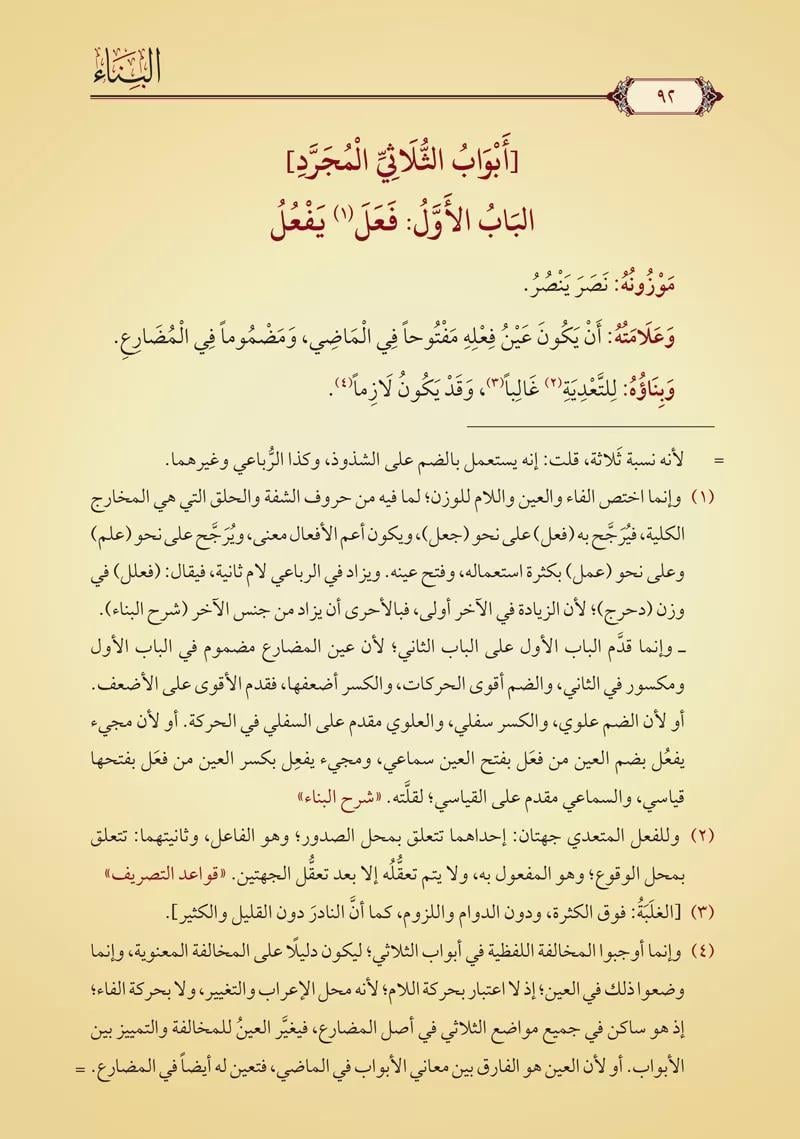 البِنَاء
٩٢
[أَبْوَابُ الثُّلَاثِيِّ الْمُجَرَّدِ]
البَابُ الأَوَّلُ: فَعَلَ(١) يَفْعُلُ
مَوْزُونُهُ: نَصَرَ يَنْصُرُ.
وَعَلَامَتُهُ: أَنْ يَكُونَ عَيْنُ فِعْلِهِ مَفْتُوحاً فِي الْمَاضِي، وَمَضْمُوماً فِي الْمُضَارِعِ.
وَبِنَاؤُهُ: لِلتَّعْدِيَةِ(٢) غَالِباً(٣)، وَقَدْ يَكُونُ لَازِماً(٤).
= لأنه نسبة ثَلاثة، قلت: إنه يستعمل بالضم على الشذوذ، وكذا الرُّباعي وغيرهما.
(١) وإنما اختص الفاء والعين واللام للوزن؛ لما فيه من حروف الشفة والحلق التي هي المخارج
الكلية، فيُرَجَّح به (فعل) على نحو (جعل)، ويكون أعم الأفعال معنى، ويُرَجَّح على نحو (علم)
وعلى نحو (عمل) بكثرة استعماله، وفتح عينه. ويزاد في الرباعي لام ثانية، فيقال: (فعلل) في
وزن (دحرج)؛ لأن الزيادة في الآخر أولى، فبالأحرى أن يزاد من جنس الآخر (شرح البناء).
ـ وإنما قدَّم الباب الأول على الباب الثاني؛ لأن عين المضارع مضموم في الباب الأول
ومكسور في الثاني، والضم أقوى الحركات، والكسر أضعفها، فقدم الأقوى على الأضعف.
أو لأن الضم علوي، والكسر سفلي، والعلوي مقدم على السفلي في الحركة. أو لأن مجيء
يفعُل بضم العين من فعَل بفتح العين سماعي، ومجيء يفعِل بكسر العين من فعَل بفتحها
قياسي، والسماعي مقدم على القياسي؛ لقلَّته. «شرح البناء»
(٢) وللفعل المتعدي جهتان: إحداهما تتعلق بمحل الصدور؛ وهو الفاعل، وثانيتهما: تتعلق
بمحل الوقوع؛ وهو المفعول به، ولا يتم تعقُّلُه إلا بعد تعقُّل الجهتين. «قواعد التصريف»
(٣) [الغلَبَةُ: فوق الكثرة، ودون الدوام واللزوم، كما أنَّ النادرَ دون القليل والكثير].
(٤) وإنما أوجبوا المخالفة اللفظية في أبواب الثلاثي؛ ليكون دليلًا على المخالفة المعنوية، وإنما
وضعوا ذلك في العين؛ إذ لا اعتبار بحركة اللام؛ لأنه محل الإعراب والتغيير، ولا بحركة الفاء؛
إذ هو ساكن في جميع مواضع الثلاثي في أصل المضارع، فيغيَّر العينُ للمخالفة والتمييز بين
الأبواب. أو لأن العين هو الفارق بين معاني الأبواب في الماضي، فتعين له أيضاً في المضارع. =